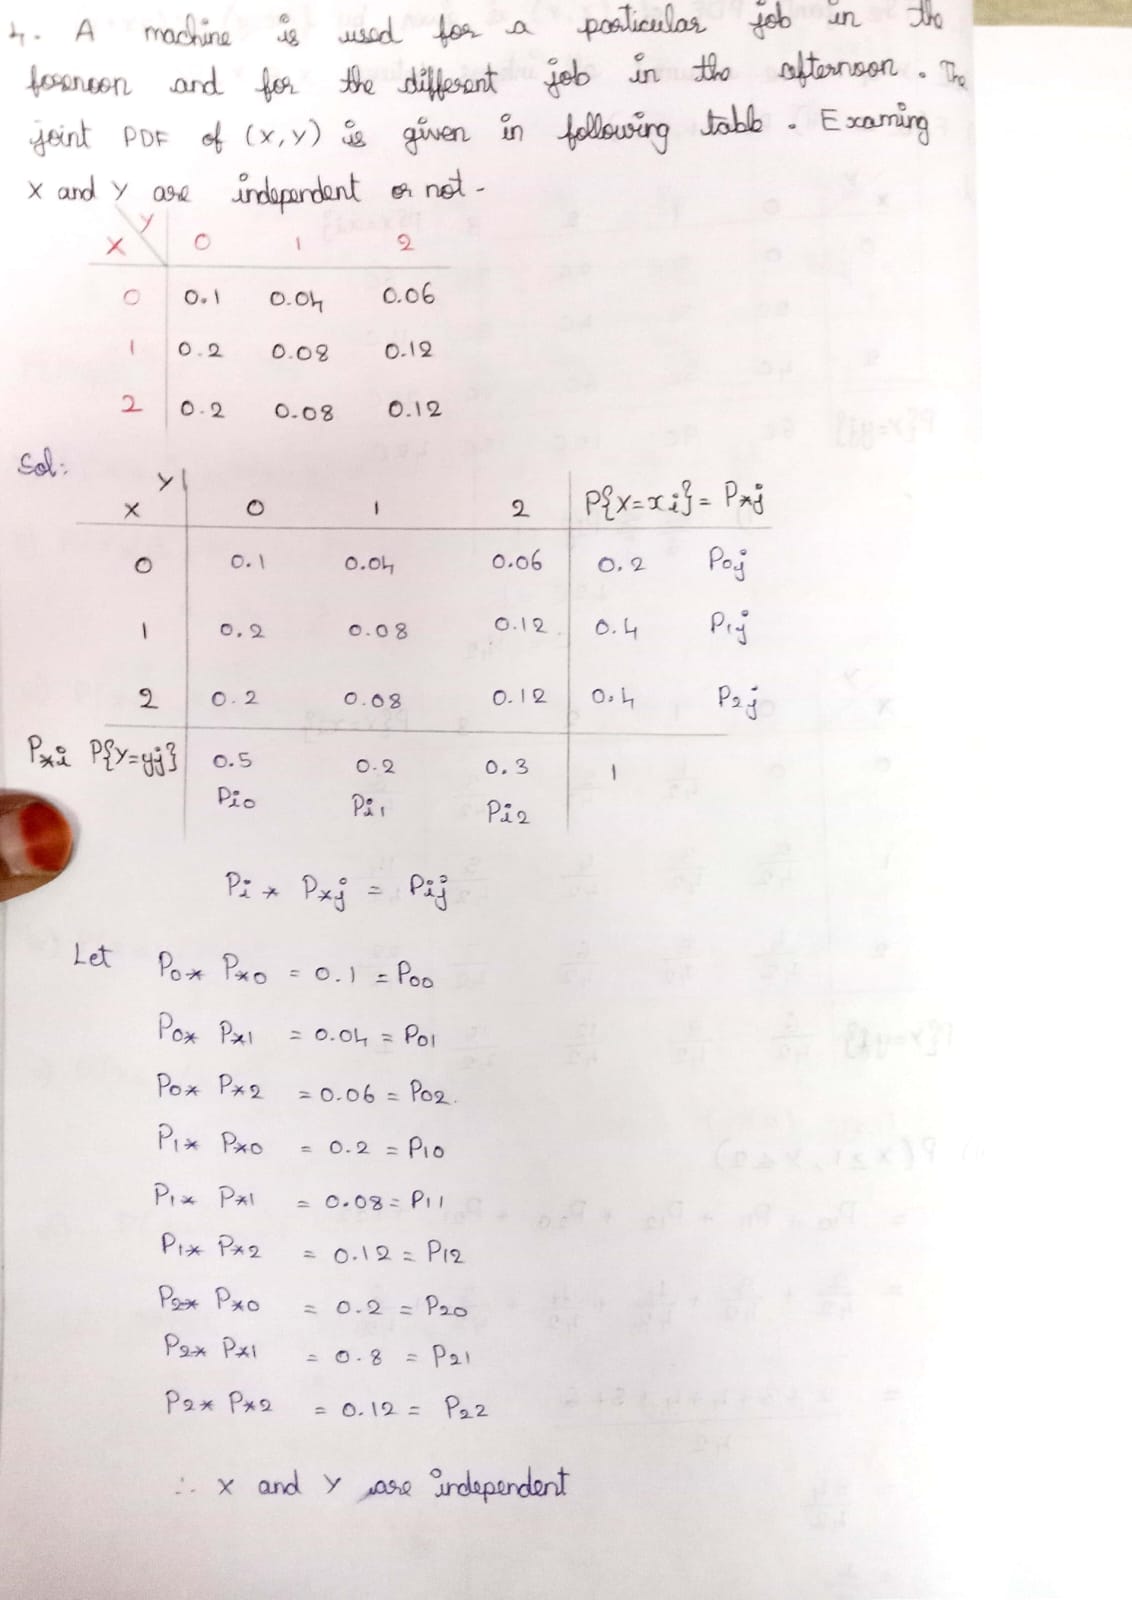 4. A machine is used for a particular job in the
forenoon and for the different job in the afternoon. The
joint PDF of (X,Y) is given in following table. Examing
X and Y are independent or not-
Y
X 0 1 2
0 0.1 0.04 0.06
1 0.2 0.08 0.12
2 0.2 0.08 0.12
Sol:
Y
X 0 1 2 P{X=xi} = P*j
0 0.1 0.04 0.06 0.2 P0j
1 0.2 0.08 0.12 0.4 P1j
2 0.2 0.08 0.12 0.4 P2j
P*i P{Y=yj} 0.5 0.2 0.3 1
Pi0 Pi1 Pi2
Pi* P*j = Pij
Let P0* P*0 = 0.1 = P00
P0* P*1 = 0.04 = P01
P0* P*2 = 0.06 = P02.
P1* P*0 = 0.2 = P10
P1* P*1 = 0.08 = P11
P1* P*2 = 0.12 = P12
P2* P*0 = 0.2 = P20
P2* P*1 = 0.8 = P21
P2* P*2 = 0.12 = P22
∴ X and Y are independent